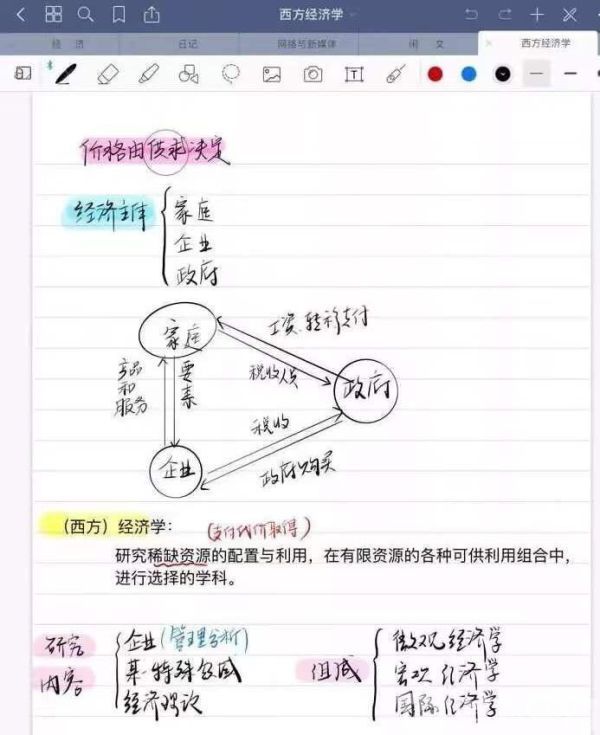 西方经济学
经 济 日记 网络与新媒体 闲 文 × 西方经济学
价格由供求决定
经济主体
家庭
企业
政府
家庭
工资、转移支付
税收
政府
产品和服务
要素
税收
企业
政府购买
(西方)经济学:
(支付代价取得)
研究稀缺资源的配置与利用,在有限资源的各种可供利用组合中,
进行选择的学科。
研究内容
企业(管理分析)
某特殊领域
经济理论
组成
微观经济学
宏观经济学
国际经济学